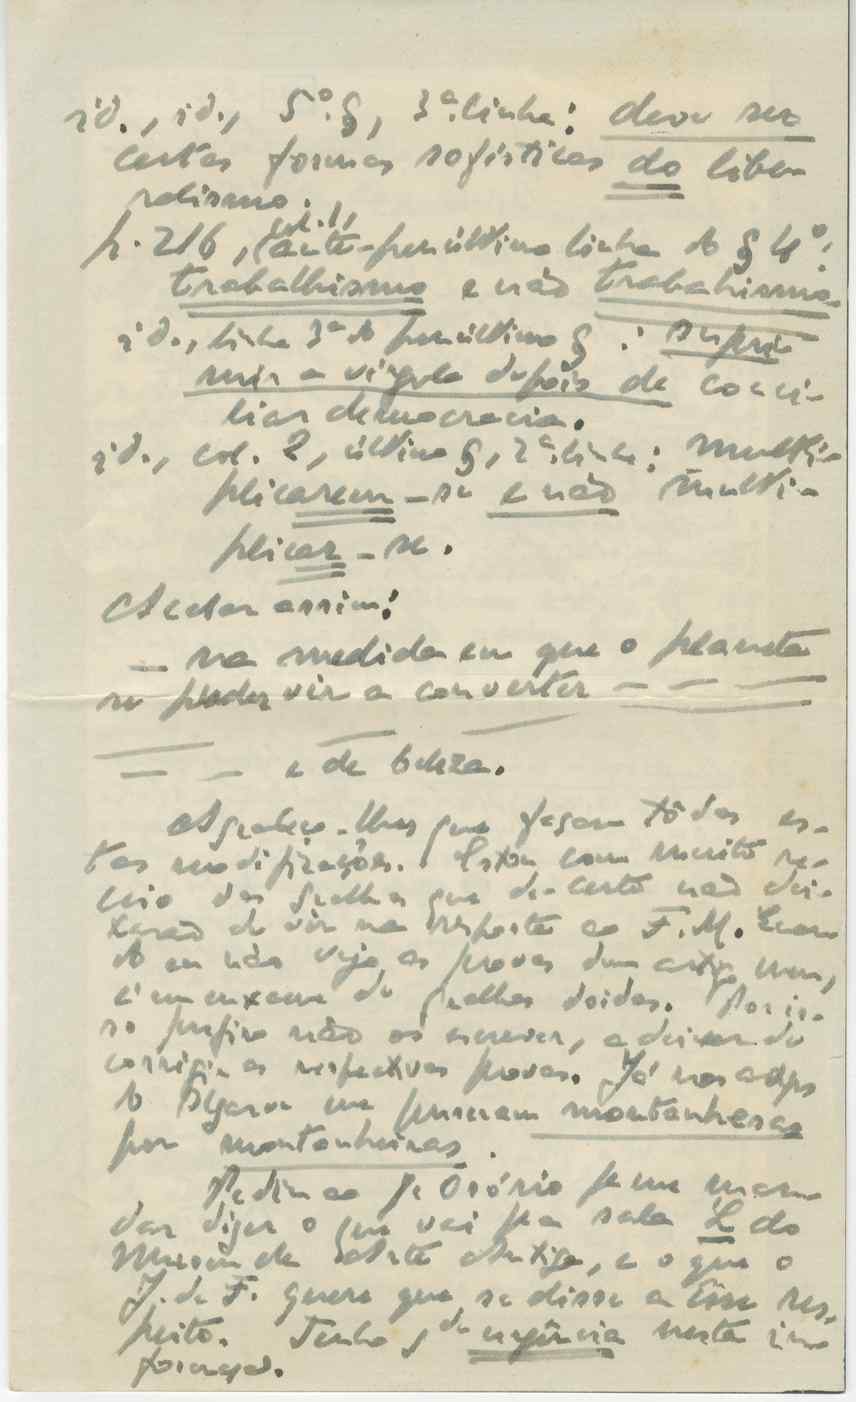 id., id., 5º. §, 3ª. linha: deve ser
certas formas sofísticas do libe-
ralismo.
p. 216, (col. 1), ante-penúltima linha do § 4º:
trabalhismo e não trabahismo.
id., linha 3ª do penúltimo § : supri-
mir a vírgula depois de conci-
liar democracia.
id., col. 2, último §, 2ª. linha: multi-
plicarem-se e não multi-
plicar-se.
Acabar assim:
— na medida em que o planeta
se poder vir a converter — — —
— — — — —
— — e de beleza.
Agradeço-lhes que façam tôdas es-
tas modificações. Estou com muito re-
ceio das gralhas que de-certo não dei-
xarão de vir na resposta ao F. M. Quan-
do eu não vejo as provas dum artigo meu,
é um enxame de gralhas doidas. Por is-
so prefiro não os escrever, a deixar de
corrigir as respectivas provas. Já nos
do Algarve me puseram montanhesas
por montanheiras.
Pedia ao Je Osório pa me man-
dar dizer o que vai pa a sala L do
Museu de Arte Antiga, e o que o
J. de F. quere que se disse a êsse res-
peito. Tenho de urgência nesta in-
formação.